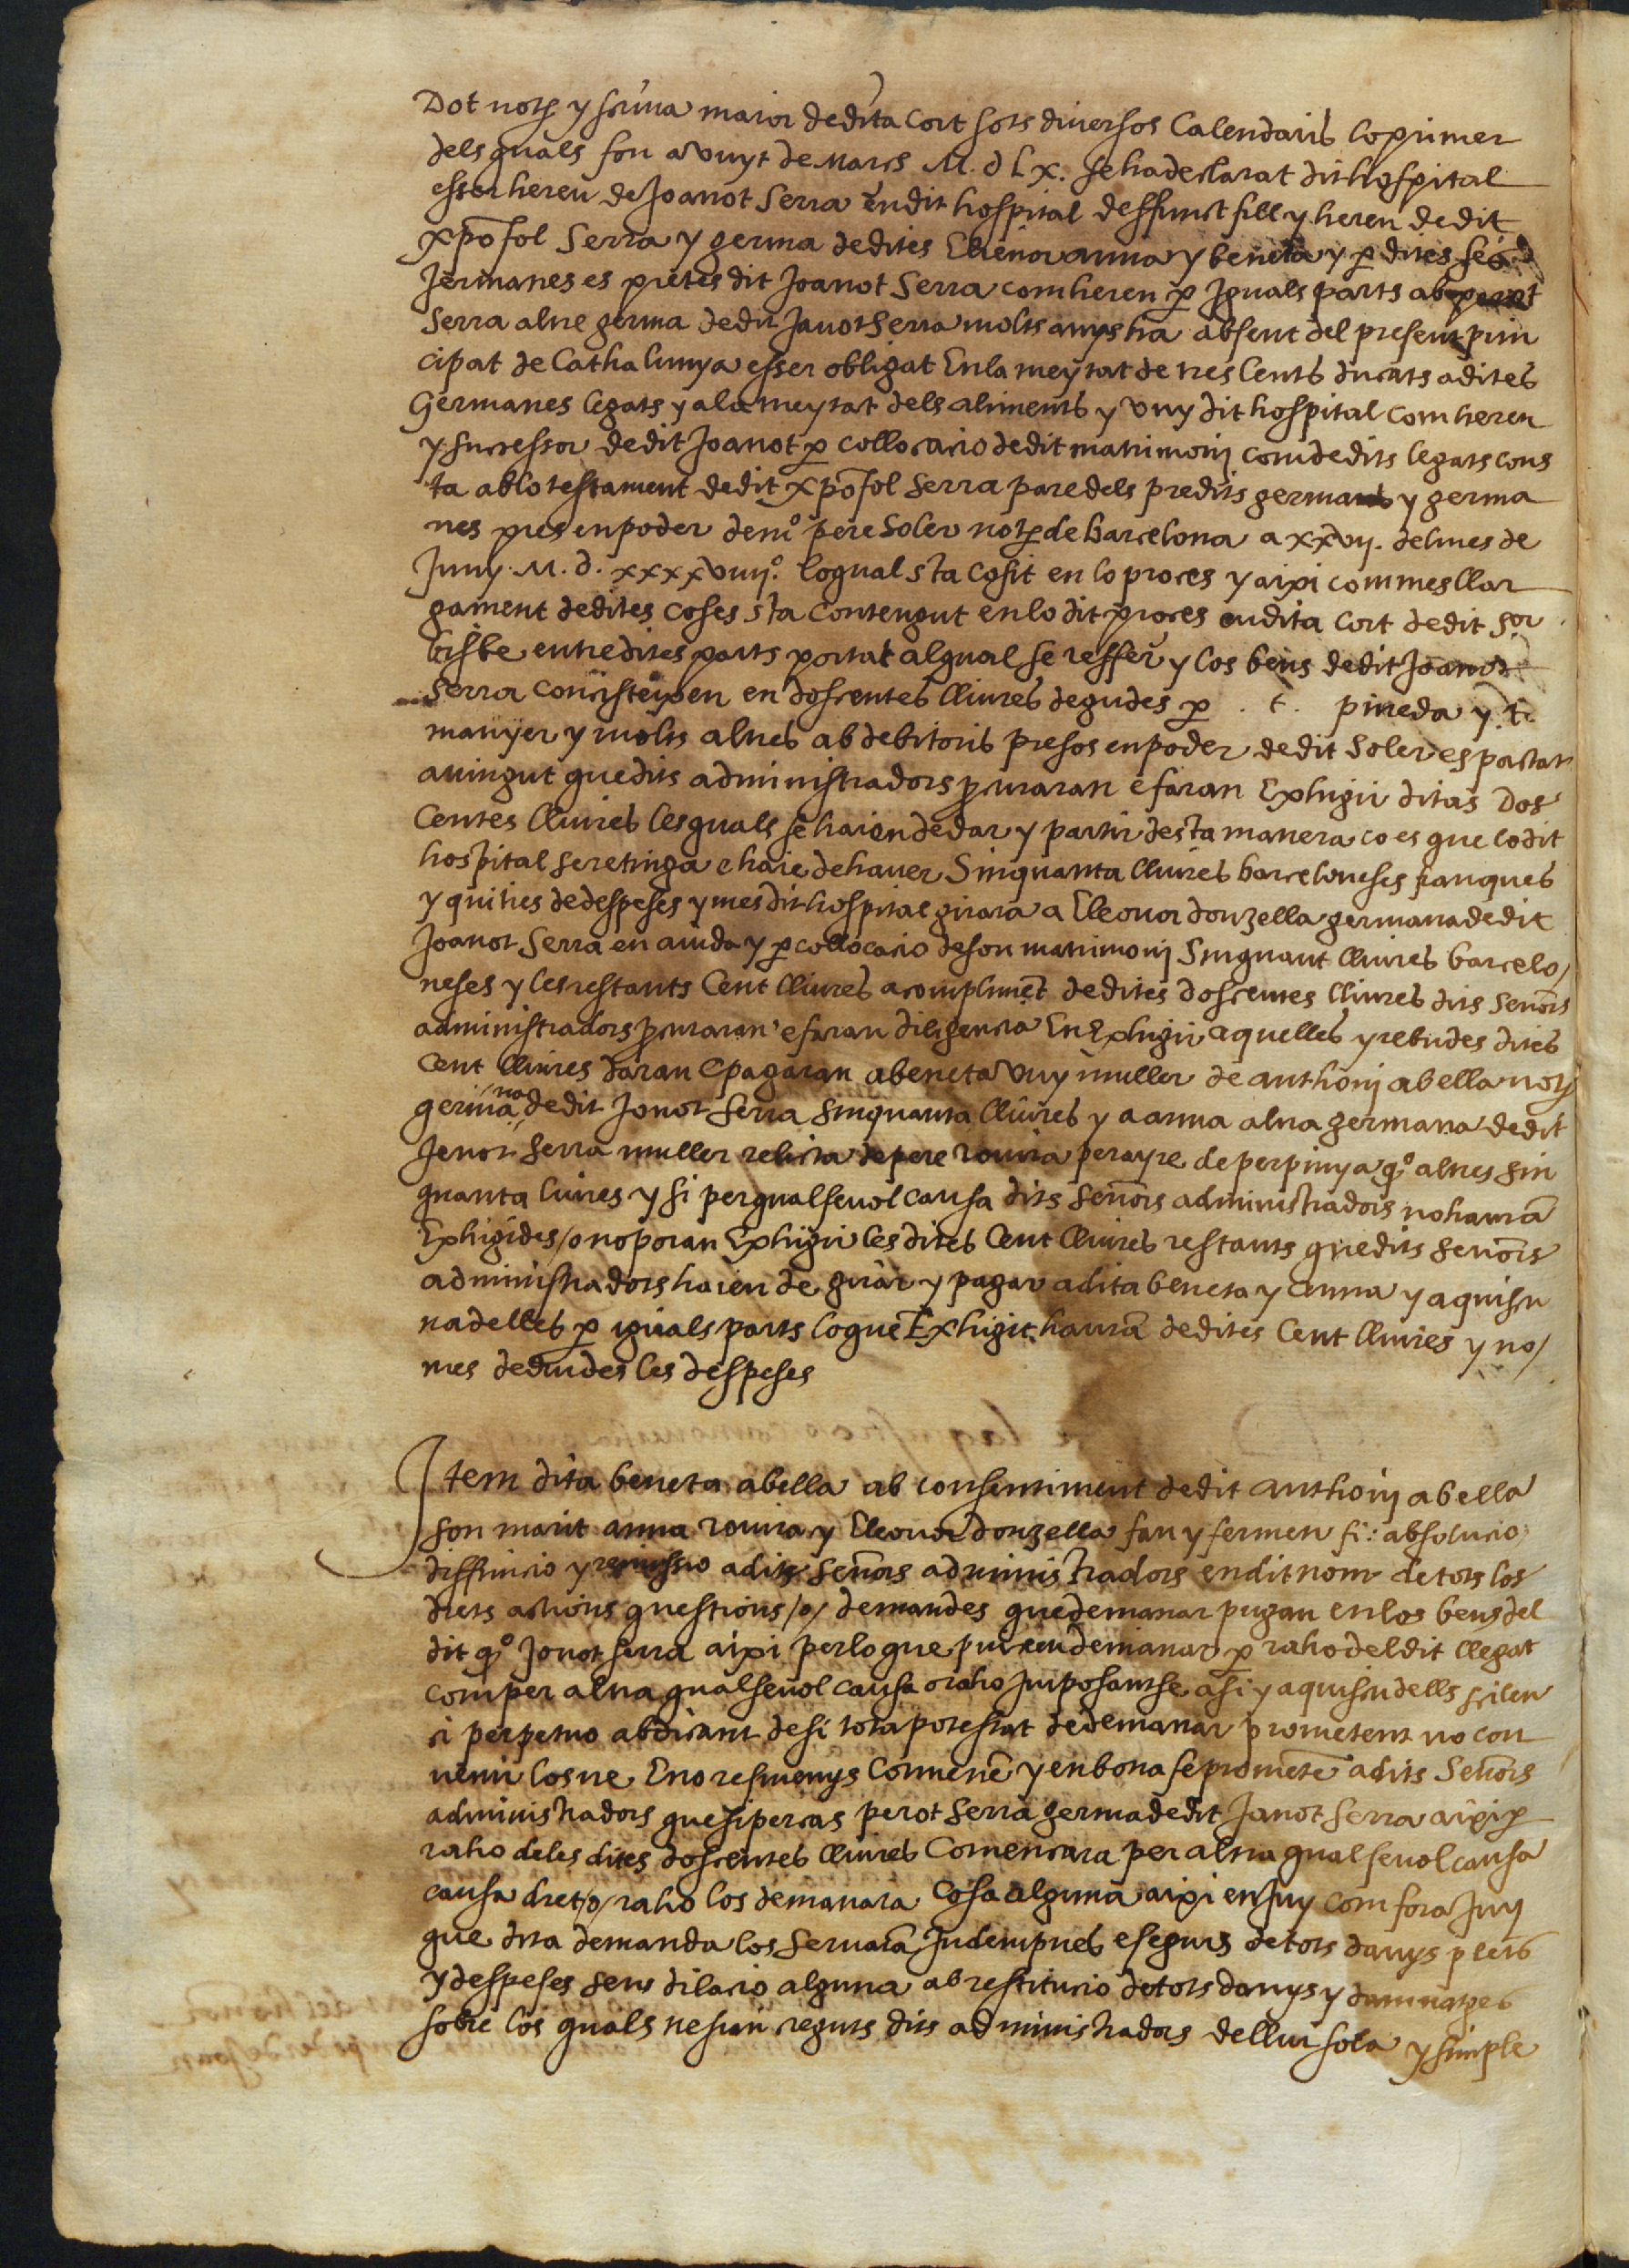 Dot notʒ y scriva maior dedita Cort sots diversos Calendaris loprimer
delsquals fou a vuyt de Mars M. d Lx. sehadeclarat dit hospital
esser hereu de Joanot Serra en dit hospital deffunct fill y hereu dedit
xpofol Serra y germa dedites Elienor anna y beneta y ꝑ dites
Jermanes es pretes dit Joanot Serra comhereu ꝑ Jguals parts ab perot
Serra altre germa dedit Janot Serra molts anys ha absent del present prin
cipat de Cathalunya esser obligat Enla meytat de tres Cents ducats adites
Germanes legats y ala meytat dels aliments y vuy dit hospital com hereu
y successor dedit Joanot ꝑ collocacio dedit matrimonj com dedits legats cons
ta ablo testament dedit xpofol Serra pare dels predits germans y germa
nes pres enpoder de mº pere Soler notʒ de barcelona a xxvij. delmes de
Juny. M. d. xxxxviiijº. loqual sta cosit en lo proces y aixi com mes llar
gament dedites coses sta contengut enlo dit proces en dita Cort dedit Sor
bisbe entredites parts portat alqual se reffer y los bens dedit Joanot
Serra consisteixen en doscentes lliures degudes ꝑ . t. pineda y. t.
manyer y molts altres ab debitoris presos enpoder dedit Soler es pactat
avingut quedits administradors ꝓcuraran e faran Exhigir ditas Dos
Centes lliures lesquals se haien dedar y partir desta manera coes que lodit
hospital seretinga e haie dehaver Sinquanta lliures barceloneses franques
y quities dedespeses y mes dit hospital girara a Elleonor donzella germana dedit
Joanot Serra en aiuda y ꝑ collocacio deson matrimonj Sinquant lliures barcelo/
neses y lesrestants Cent lliures a compliment dedites doscentes lliures dits Senors
administradors ꝓcuraran e faran diligencia En Exhigir aquelles y rebudes dites
Cent lliures daran e pagaran abeneta vuy muller de anthonj abella notʒ
germana dedit Jonot Serra sinquanta lliures y a anna altra germana dedit
Jenot Serra muller relicta de pere rovira perayre de perpinya qº altres sin
quanta liures y si perqualsevol causa dits senors administradors nohaura
Exhigides /o noporan Exhigir les dites Cent lliures restants quedits senors
administradors haien de girar y pagar adita beneta y Anna y aquiscu
nadelles ꝑ iguals parts loque Exhigit haura dedites Cent lliures y no/
mes deduides les despeses
Item dita beneta abella ab consentiment dedit Anthonj abella
son marit anna rovira y Elleonor donzella fan y fermen fi: absolucio
diffinicio y remissio adits Senors administradors enditnom de tots los
drets actions questions /o/ demandes quedemanar pugan enlos bens del
dit qº Jonot serra aixi perloque puixen demanar ꝑ raho deldit llegat
comper altra qualsevol causa o raho Jmposantse asi y aquiscu dells silen
ci perpetuo abdicant desi tota potestat dedemanar prometent no con
venir losne Eno resmenys Convene y enbona fe promete adits Senors
administradors que si percas perot Serra germa dedit Janot Serra aixi ꝑ
raho deles dites doscentes lliures Comensara per altra qualsevol causa
causa dret /o/ raho los demanara Cosa alguna aixi en Juy com fora Juy
que dita demanda los Servara Indempnes e segurs detots danys plets
y despeses sens dilacio alguna ab restitucio detots danys y damnatges
sobre los quals nesian creguts dits administradors dellur sola y simple